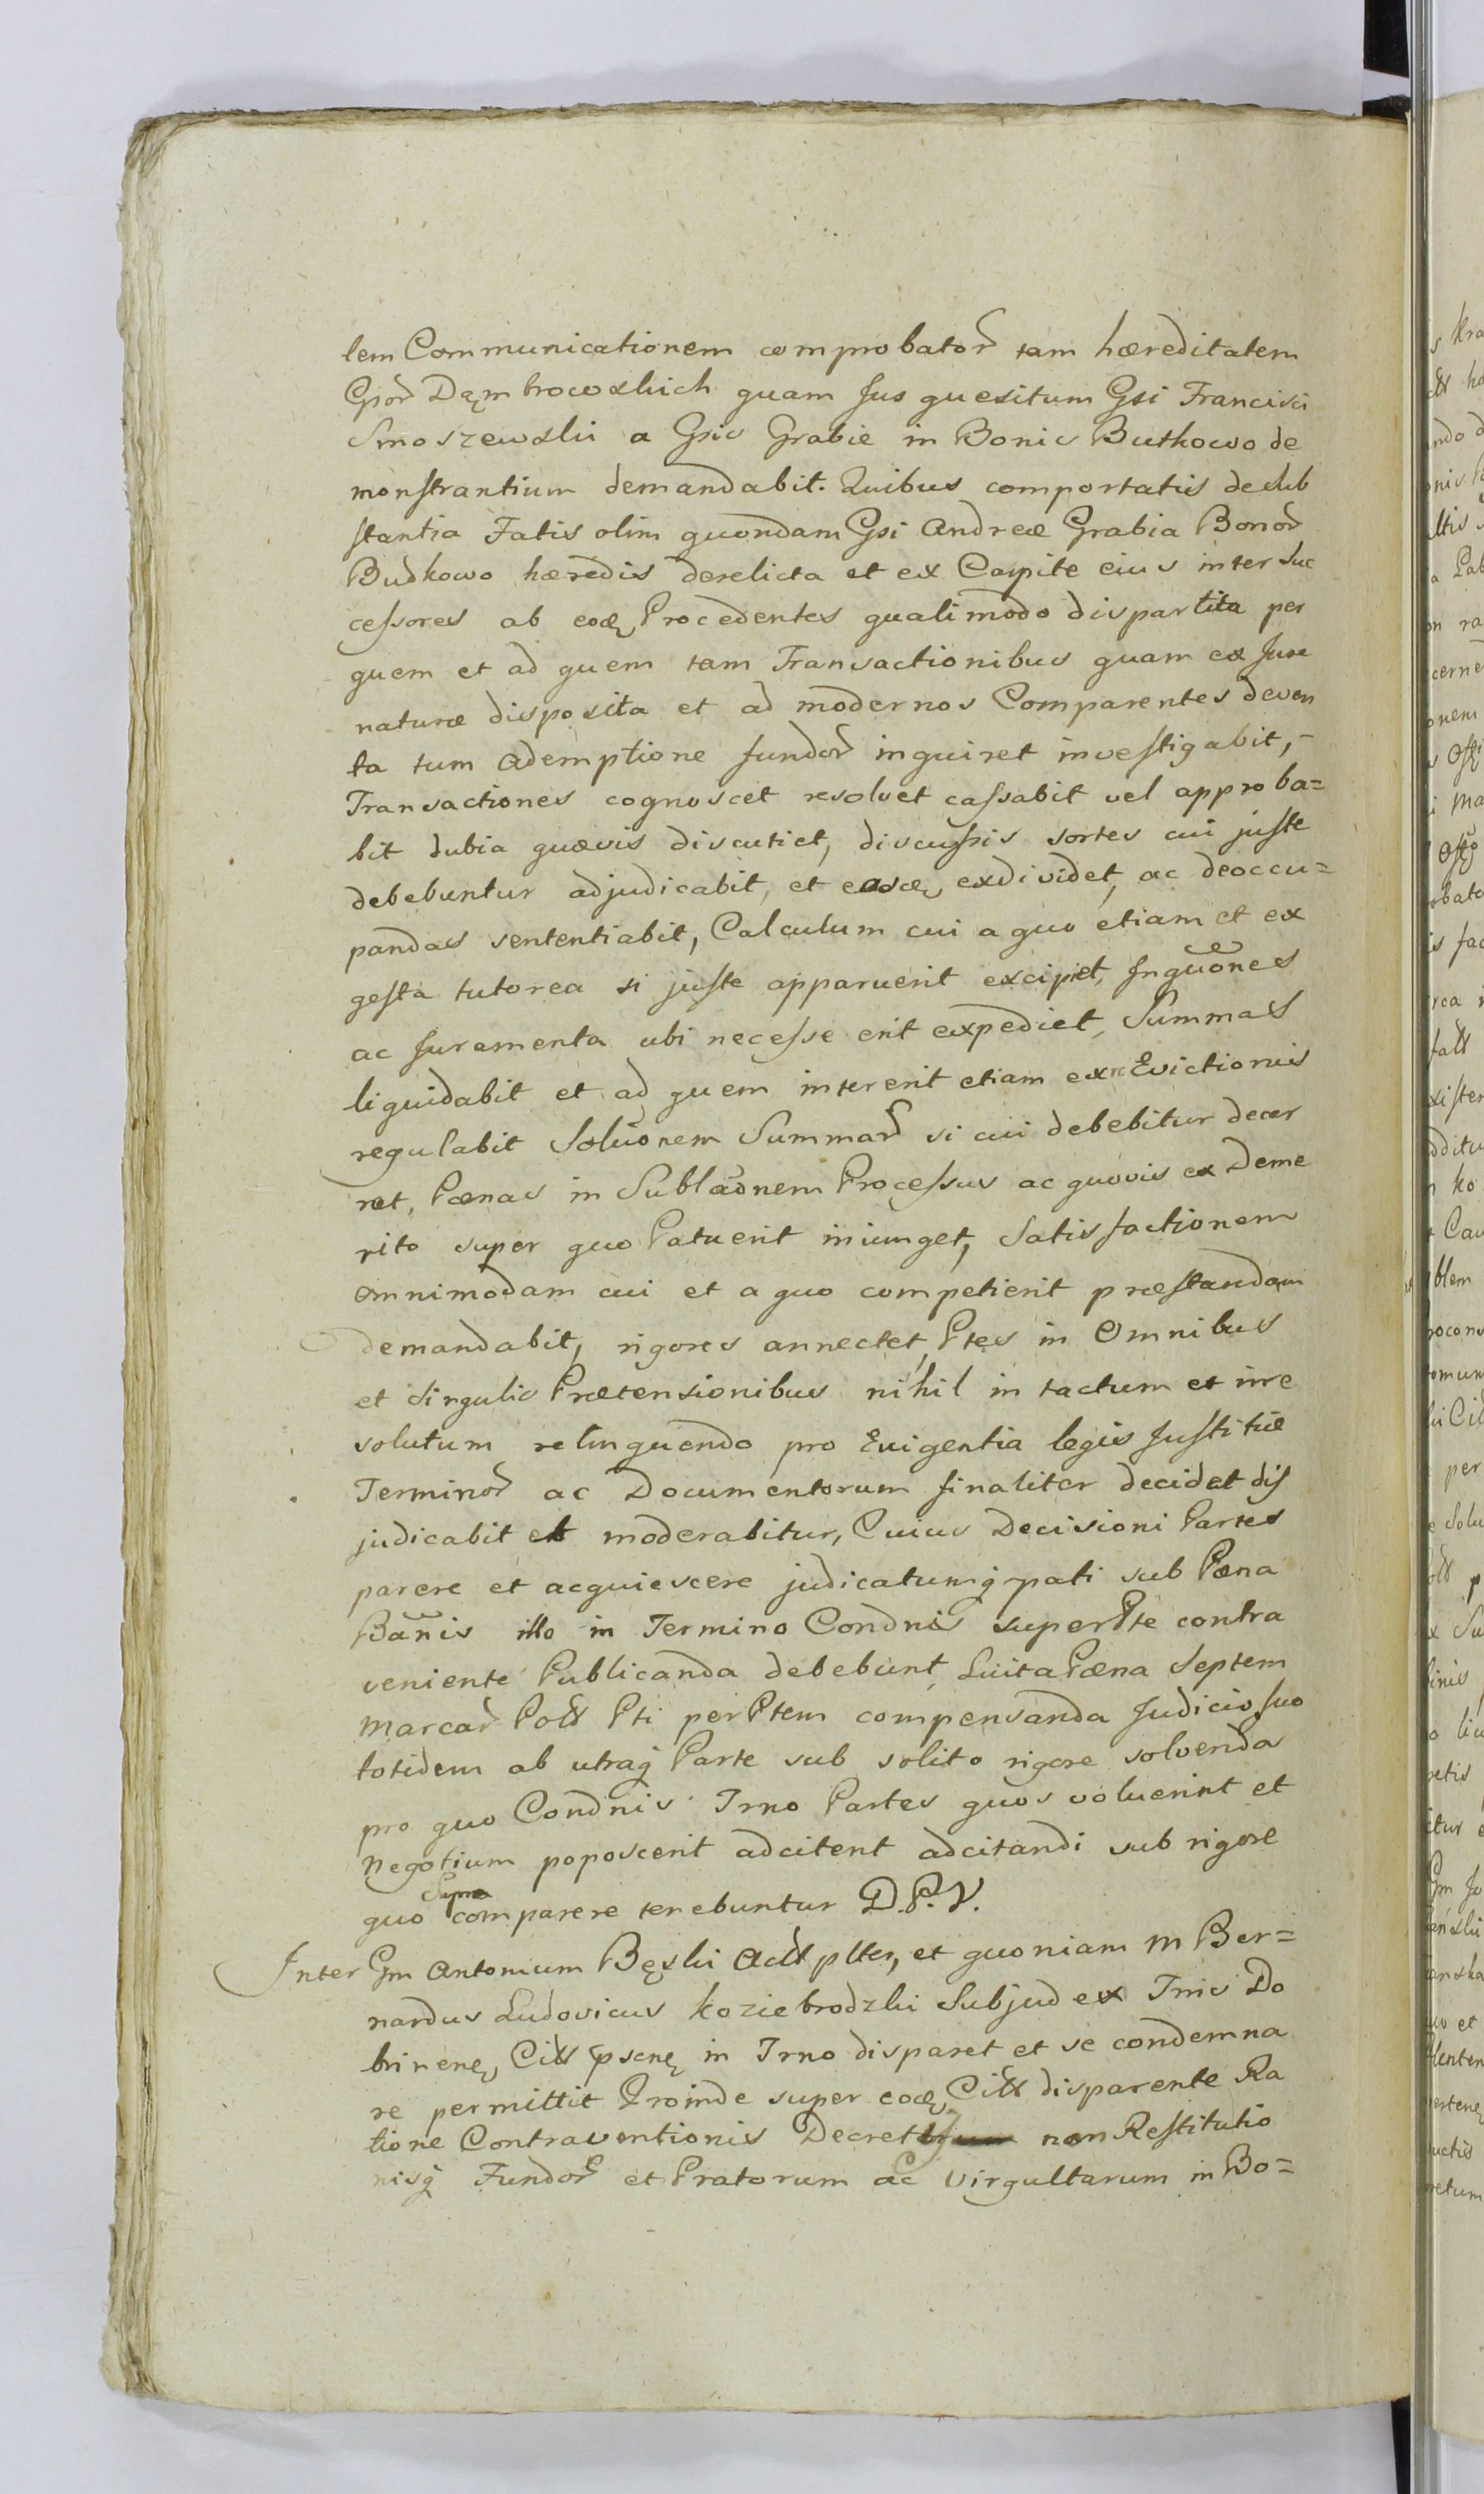 lem Communicationem comprobator̃ tam hæreditatem
Gsor̃ Dąmbrowskich quam Jus quesitum Gsi Francisci
Smoszewski a Gsis Grabie in Bonis Butkowo de
monstrantium demandabit. Quibus comportatis de sub
stantia Fatis olim quondam Gsi Andreæ Grabia Bonor̃
Budkowo hæredis derelicta et ex Capite eius inter suc
cessores ab eoq Procedentes qualimodo dispartita per
quem et ad quem tam Transactionibus quam ex Jure
naturæ disposita et ad modernos Comparentes deven
ta tum Ademptione fundor̃ inquiret investigabit,
Transactiones cognoscet resolvet cassabit vel approba=
bit dubia quævis discutiet, discussis sortes cui juste
debebuntur adjudicabit, et easq exdividet, ac deoccu=
pandas sententiabit, Calculum cui a quo etiam et ex
gesta tutorea si juste apparuerit excipiet, Inqu̅ones
ac Juramenta ubi necesse erit expediet, Summas
liquidabit et ad quem intererit etiam ex re Evictionis
regulabit Solu̅onem Summar̃ si cui debebitur decer
net, Pœnas in Subla̅onem Processus ac quovis ex Deme
rito super quo Patuerit iniunget, Satisfactionem
omnimodam cui et a quo competierit præstandam
demandabit, rigores annectet, Ptes in Omnibus
et singulis Prætensionibus nihil in tactum et irre
solutum relinquendo pro Exigentia legis Justitiæ
Terminor̃ ac Documentorum finaliter decidet dis
judicabit et moderabitur, Cuius Decisioni Partes
parere et acquiescere judicatumq pati sub Pœna
Ba̅nis illo in Termino Condnis super Pte contra
veniente Publicanda debebunt, Luita Pœna Septem
Marcar̃ Polł Pti per Ptem compensanda Judicio suo
totidem ab utraq Parte sub solito rigore solvenda
pro quo Condnis Trno Partes quos voluerint et
negotium poposcerit adcitent adcitandi sub rigore
Supra
quo comparere tenebuntur D.P.V.
Inter Gm Antonium Bęski Actł plter, et quoniam M Ber=
nardus Ludovicus Koziebrodzki Subjudex Tris Do
brinenę Citł psenę in Trno disparet et se condemna
re permittit Proinde super eoq Citł disparente Ra
tione Contraventionis Decret non Restitutio
nisq Fundor̃ et Pratorum ac Virgultarum in Bo=